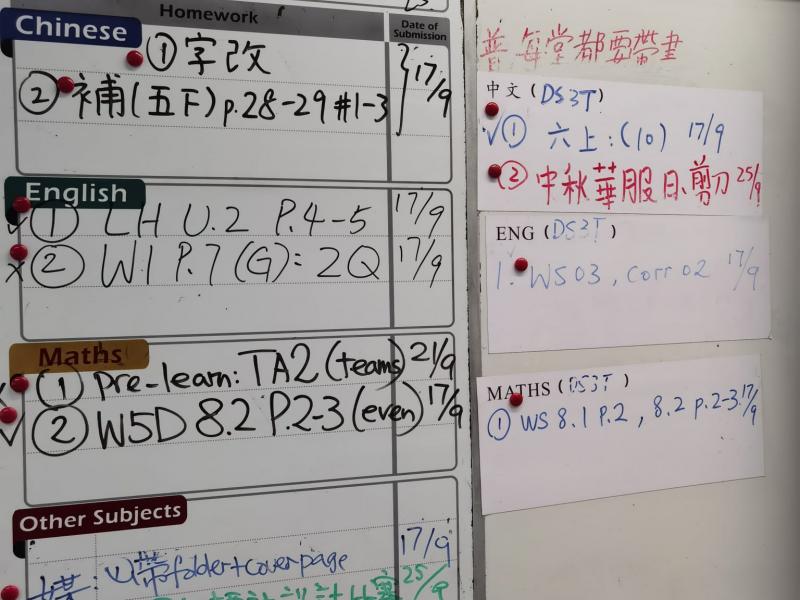 Homework
Date of Submission
Chinese
① 字改
② 補(五下) p.28-29 #1-3
17/9
English
① LH U.2 P.4-5 17/9
② W.1 P.7 (G): 2Q 17/9
Maths
① pre-learn: TA2 (teams) 21/9
② W5D 8.2 P.2-3 (even) 17/9
Other Subjects
① 帶folder+coverpage 17/9
25/9
普 每堂都要帶書
中文 (DS3T)
① 六上:(10) 17/9
② 中秋華服日、剪刀 25/9
ENG (DS3T)
1. WS03, corr 02 17/9
MATHS (DS3T)
① WS 8.1 P.2, 8.2 p.2-3. 17/9